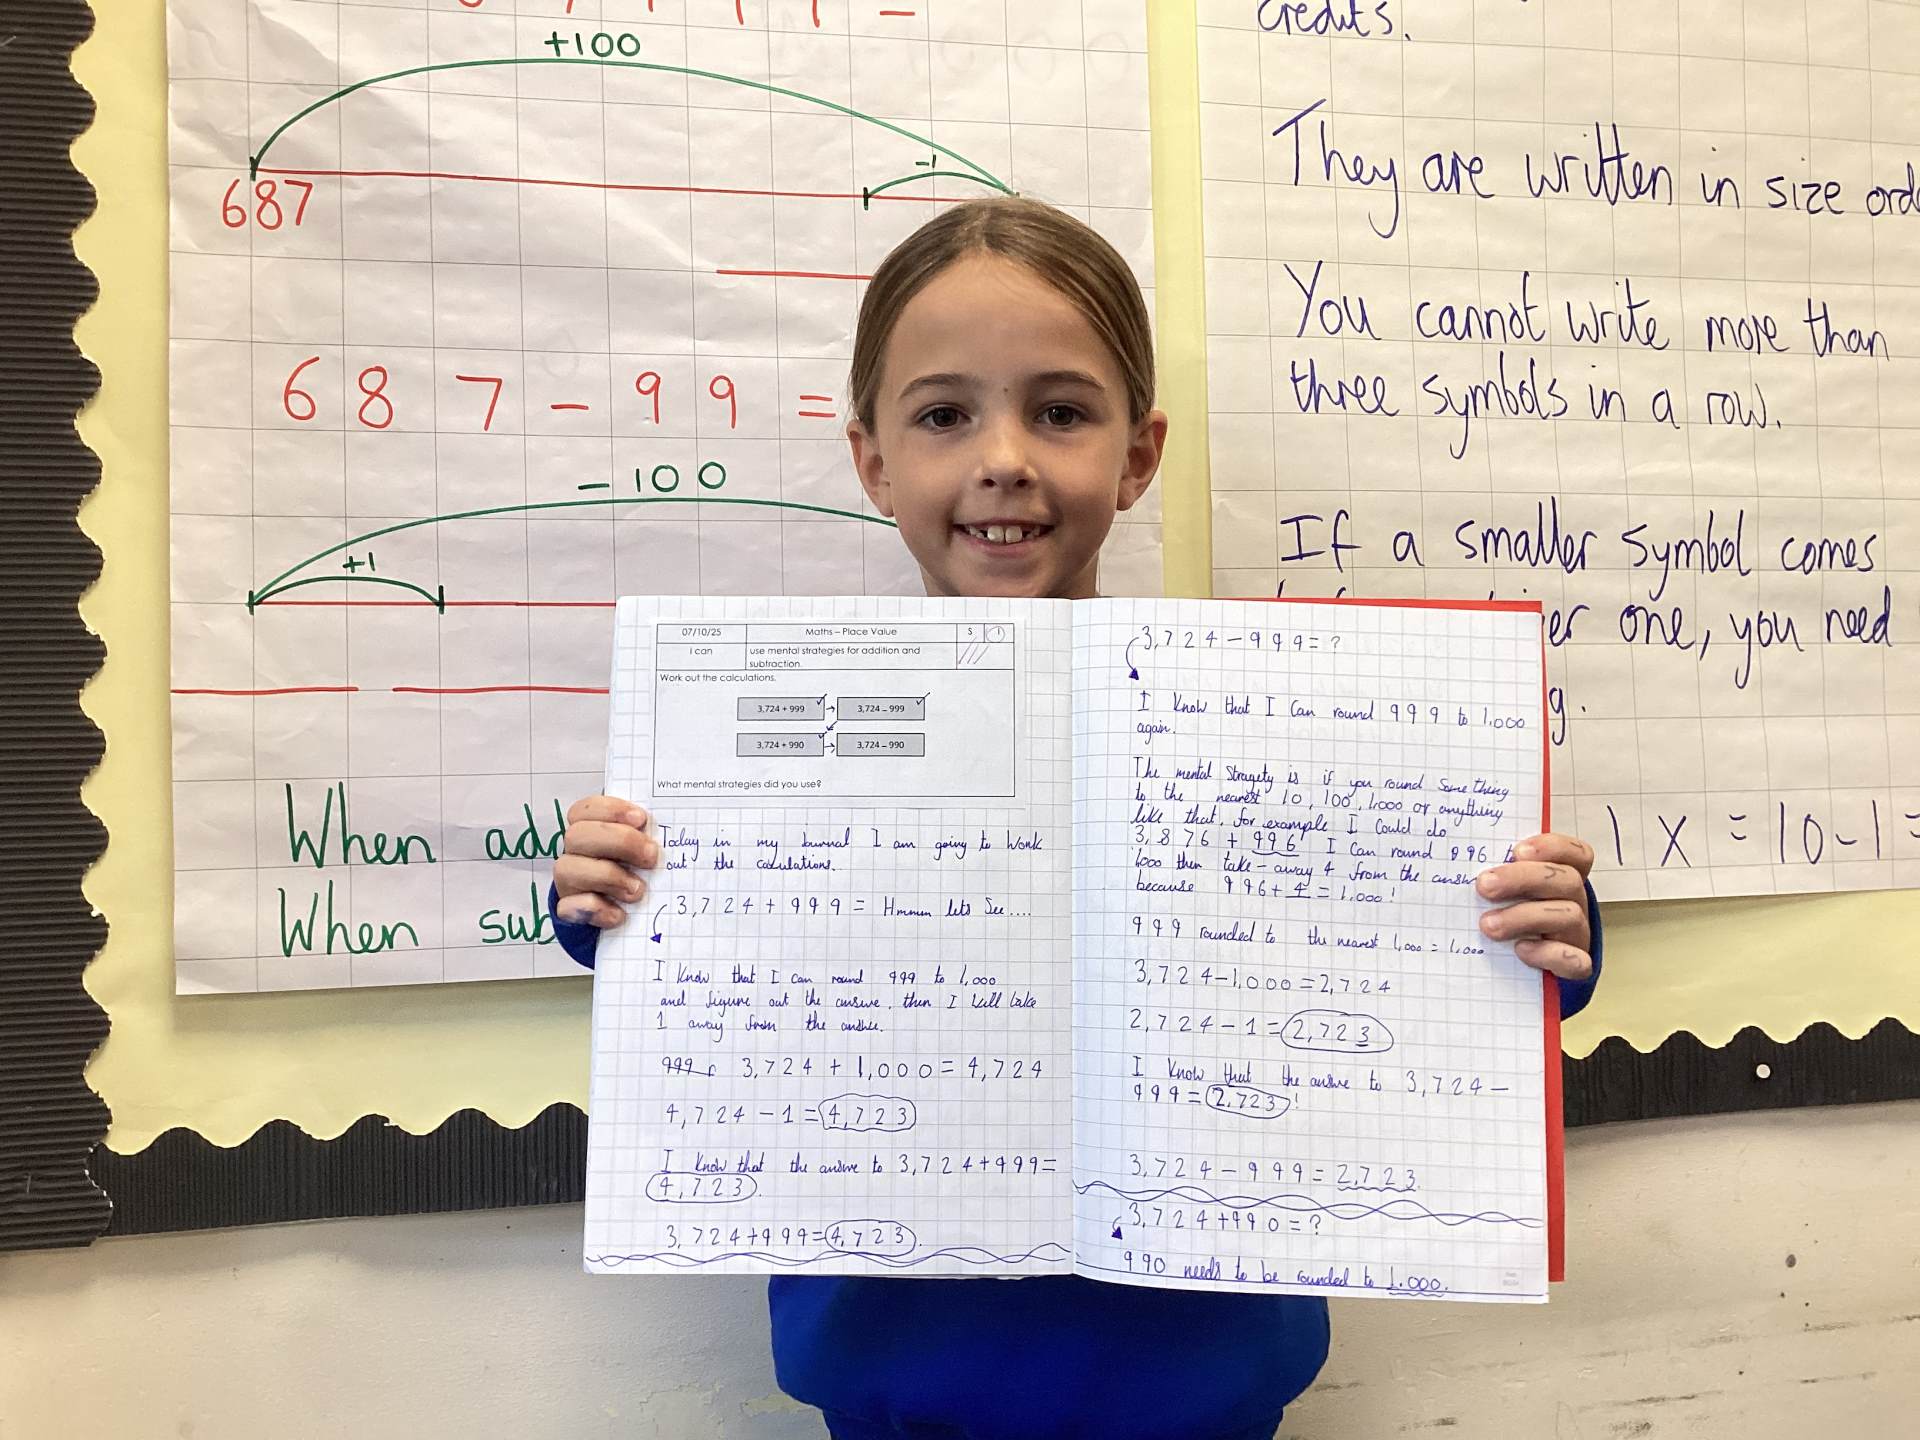 +100
-1
687
687-99=
-100
+1
When add
When sub
credits.
They are written in size ord
You cannot write more than
three symbols in a row.
If a smaller symbol comes
er one, you need
g.
1X = 10-1=
07/10/25 Maths – Place Value S 1
I can use mental strategies for addition and
subtraction.
Work out the calculations.
3,724 + 999 3,724 – 999
3,724 + 990 3,724 – 990
What mental strategies did you use?
Today in my I am going to work
out the
3,724 + 999 = Hmmm lets See....
I know that I can round 999 to 1,000
and figure out the then I will take
1 away from the
999 3,724 + 1,000 = 4,724
4,724 - 1 = 4,723
I know that the to 3,724+999=
4,723.
3,724+999=4,723.
3,724-999=?
I know that I can round 999 to 1,000
again.
The mental stragety is if you round something
to the nearest 10, 100, 1,000 or anything
like that. for example I could do
3,876 + 996 I can round 996 to
1000 then take-away 4 from the
because 996+4=1,000!
999 rounded to the nearest 1,000 = 1,000
3,724-1,000=2,724
2,724-1=2,723
I know that the to 3,724-
999=2,723!
3,724-999=2,723.
3,724+990=?
990 needs to be rounded to 1,000.